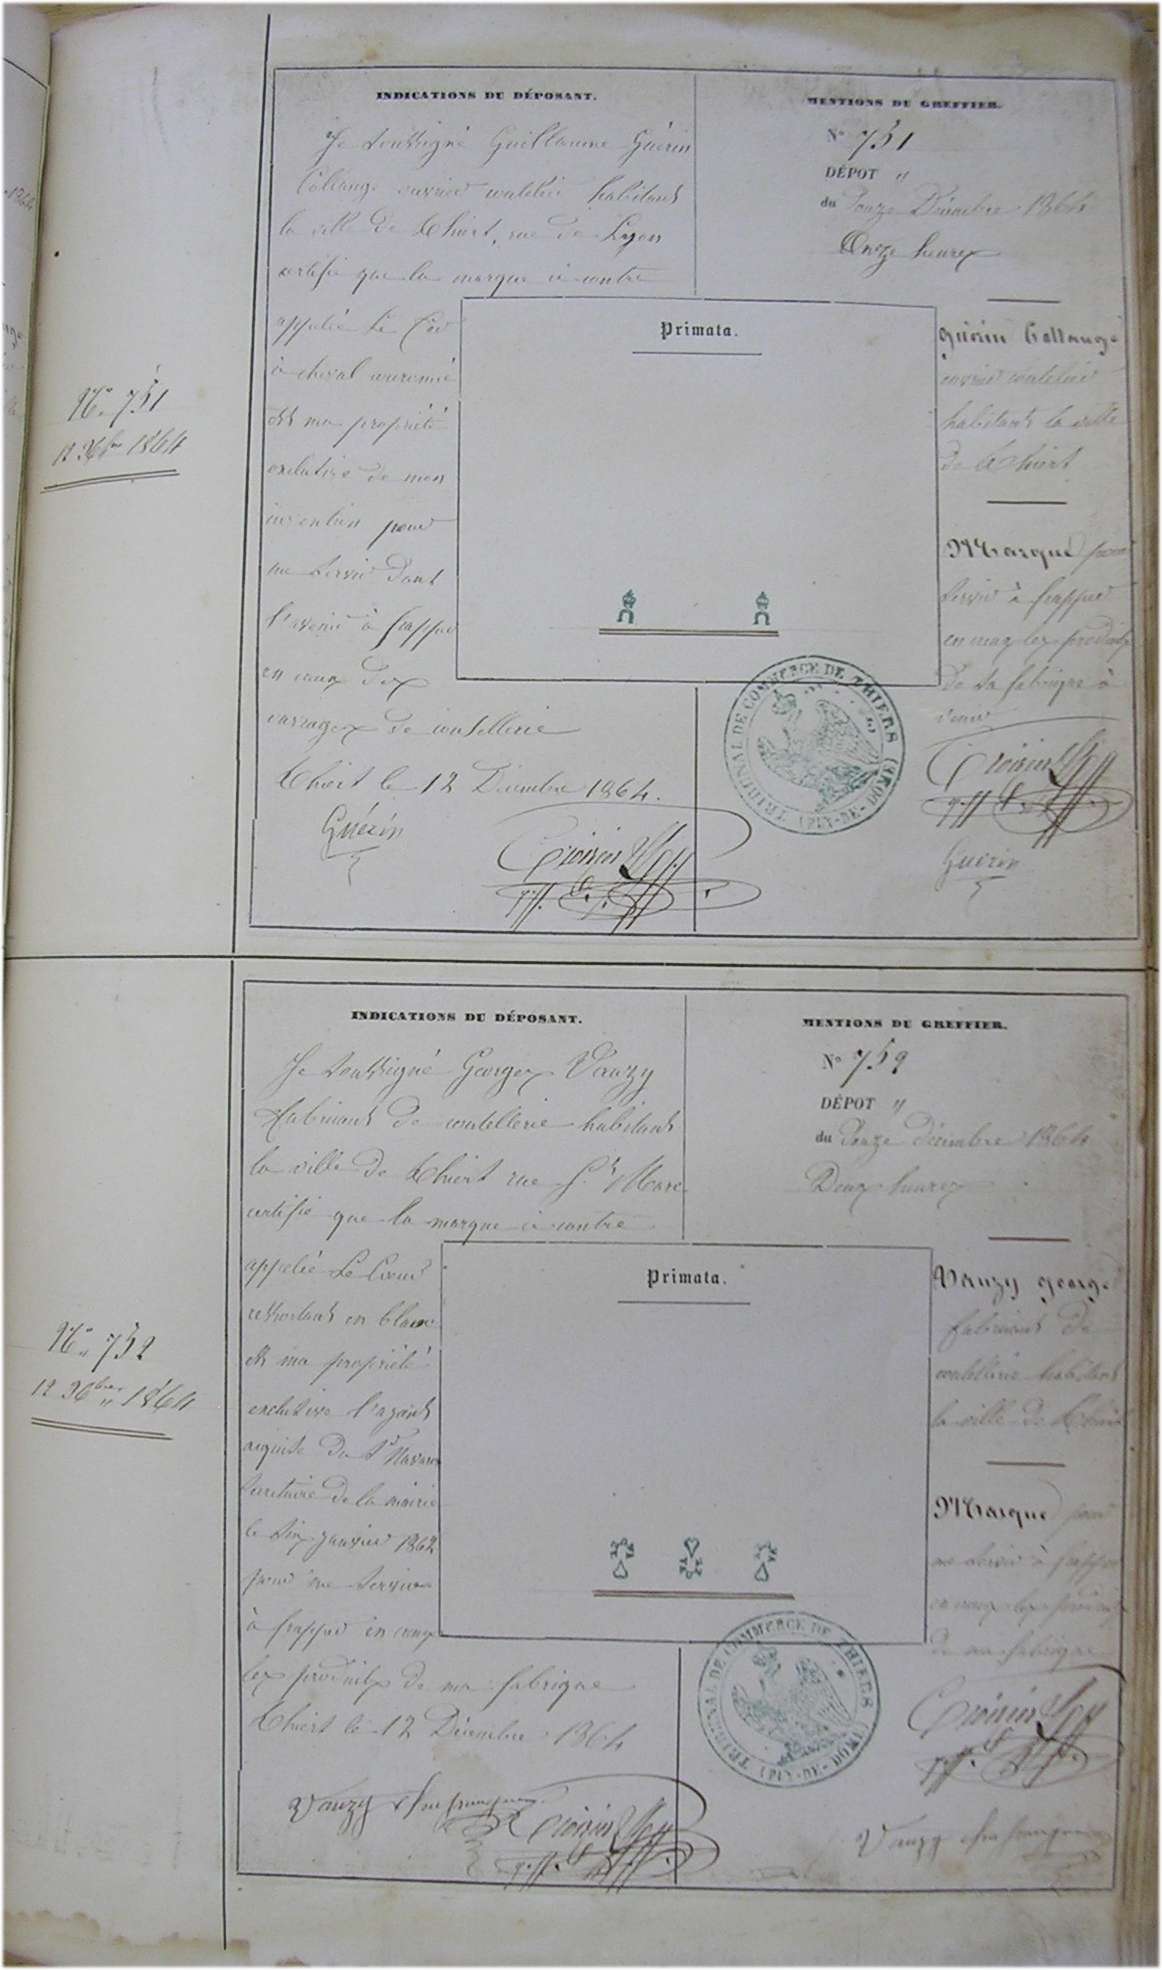 INDICATIONS DU DÉPOSANT.
Je soussigné Guillaume Guérin
ouvrier coutelier habitant
la ville de Thiers, rue de Lyon
certifie que la marque ci contre
appelée Le
à cheval couronné
est ma propriété
exclusive de mon
invention pour
me servir dans
l'avenir à frapper
en creux des
ouvrages de coutellerie
Thiers le 12 Décembre 1864.
Guérin
MENTIONS DU GREFFIER.
N° 751
DÉPOT "
du Douze Décembre 1864
Onze heures
Primata.
Guérin
ouvrier coutelier
habitant la ville
de Thiers
Marque pour
servir à frapper
en creux les produits
de sa fabrique à
venir
TRIBUNAL DE COMMERCE DE THIERS (PUY-DE-DOME)
Guérin
N° 751
12 Xbre 1864
INDICATIONS DU DÉPOSANT.
Je soussigné Georges Vauzy
fabricant de coutellerie habitant
la ville de Thiers rue St Marc
certifie que la marque ci contre
appelée Le Coeur
ressortant en blanc
est ma propriété
exclusive l'ayant
acquise du Sr
Secrétaire de la mairie
le six janvier 1862
pour me servir
à frapper en creux
les produits de ma fabrique
Thiers le 12 Décembre 1864
Vauzy
MENTIONS DU GREFFIER.
N° 752
DÉPOT "
du Douze décembre 1864
Deux heures
Primata.
Vauzy george
fabricant de
coutellerie habitant
la ville de Thiers
Marque pour
me servir à frapper
en creux les produits
de ma fabrique
TRIBUNAL DE COMMERCE DE THIERS (PUY-DE-DOME)
Vauzy
N° 752
12 Xbre 1864